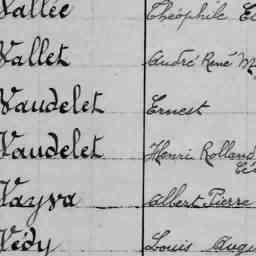 Vallée Théophile
Vallet André René
Vaudelet Ernest
Vaudelet Henri Rolland
Vayva Albert Pierre
Védy Louis